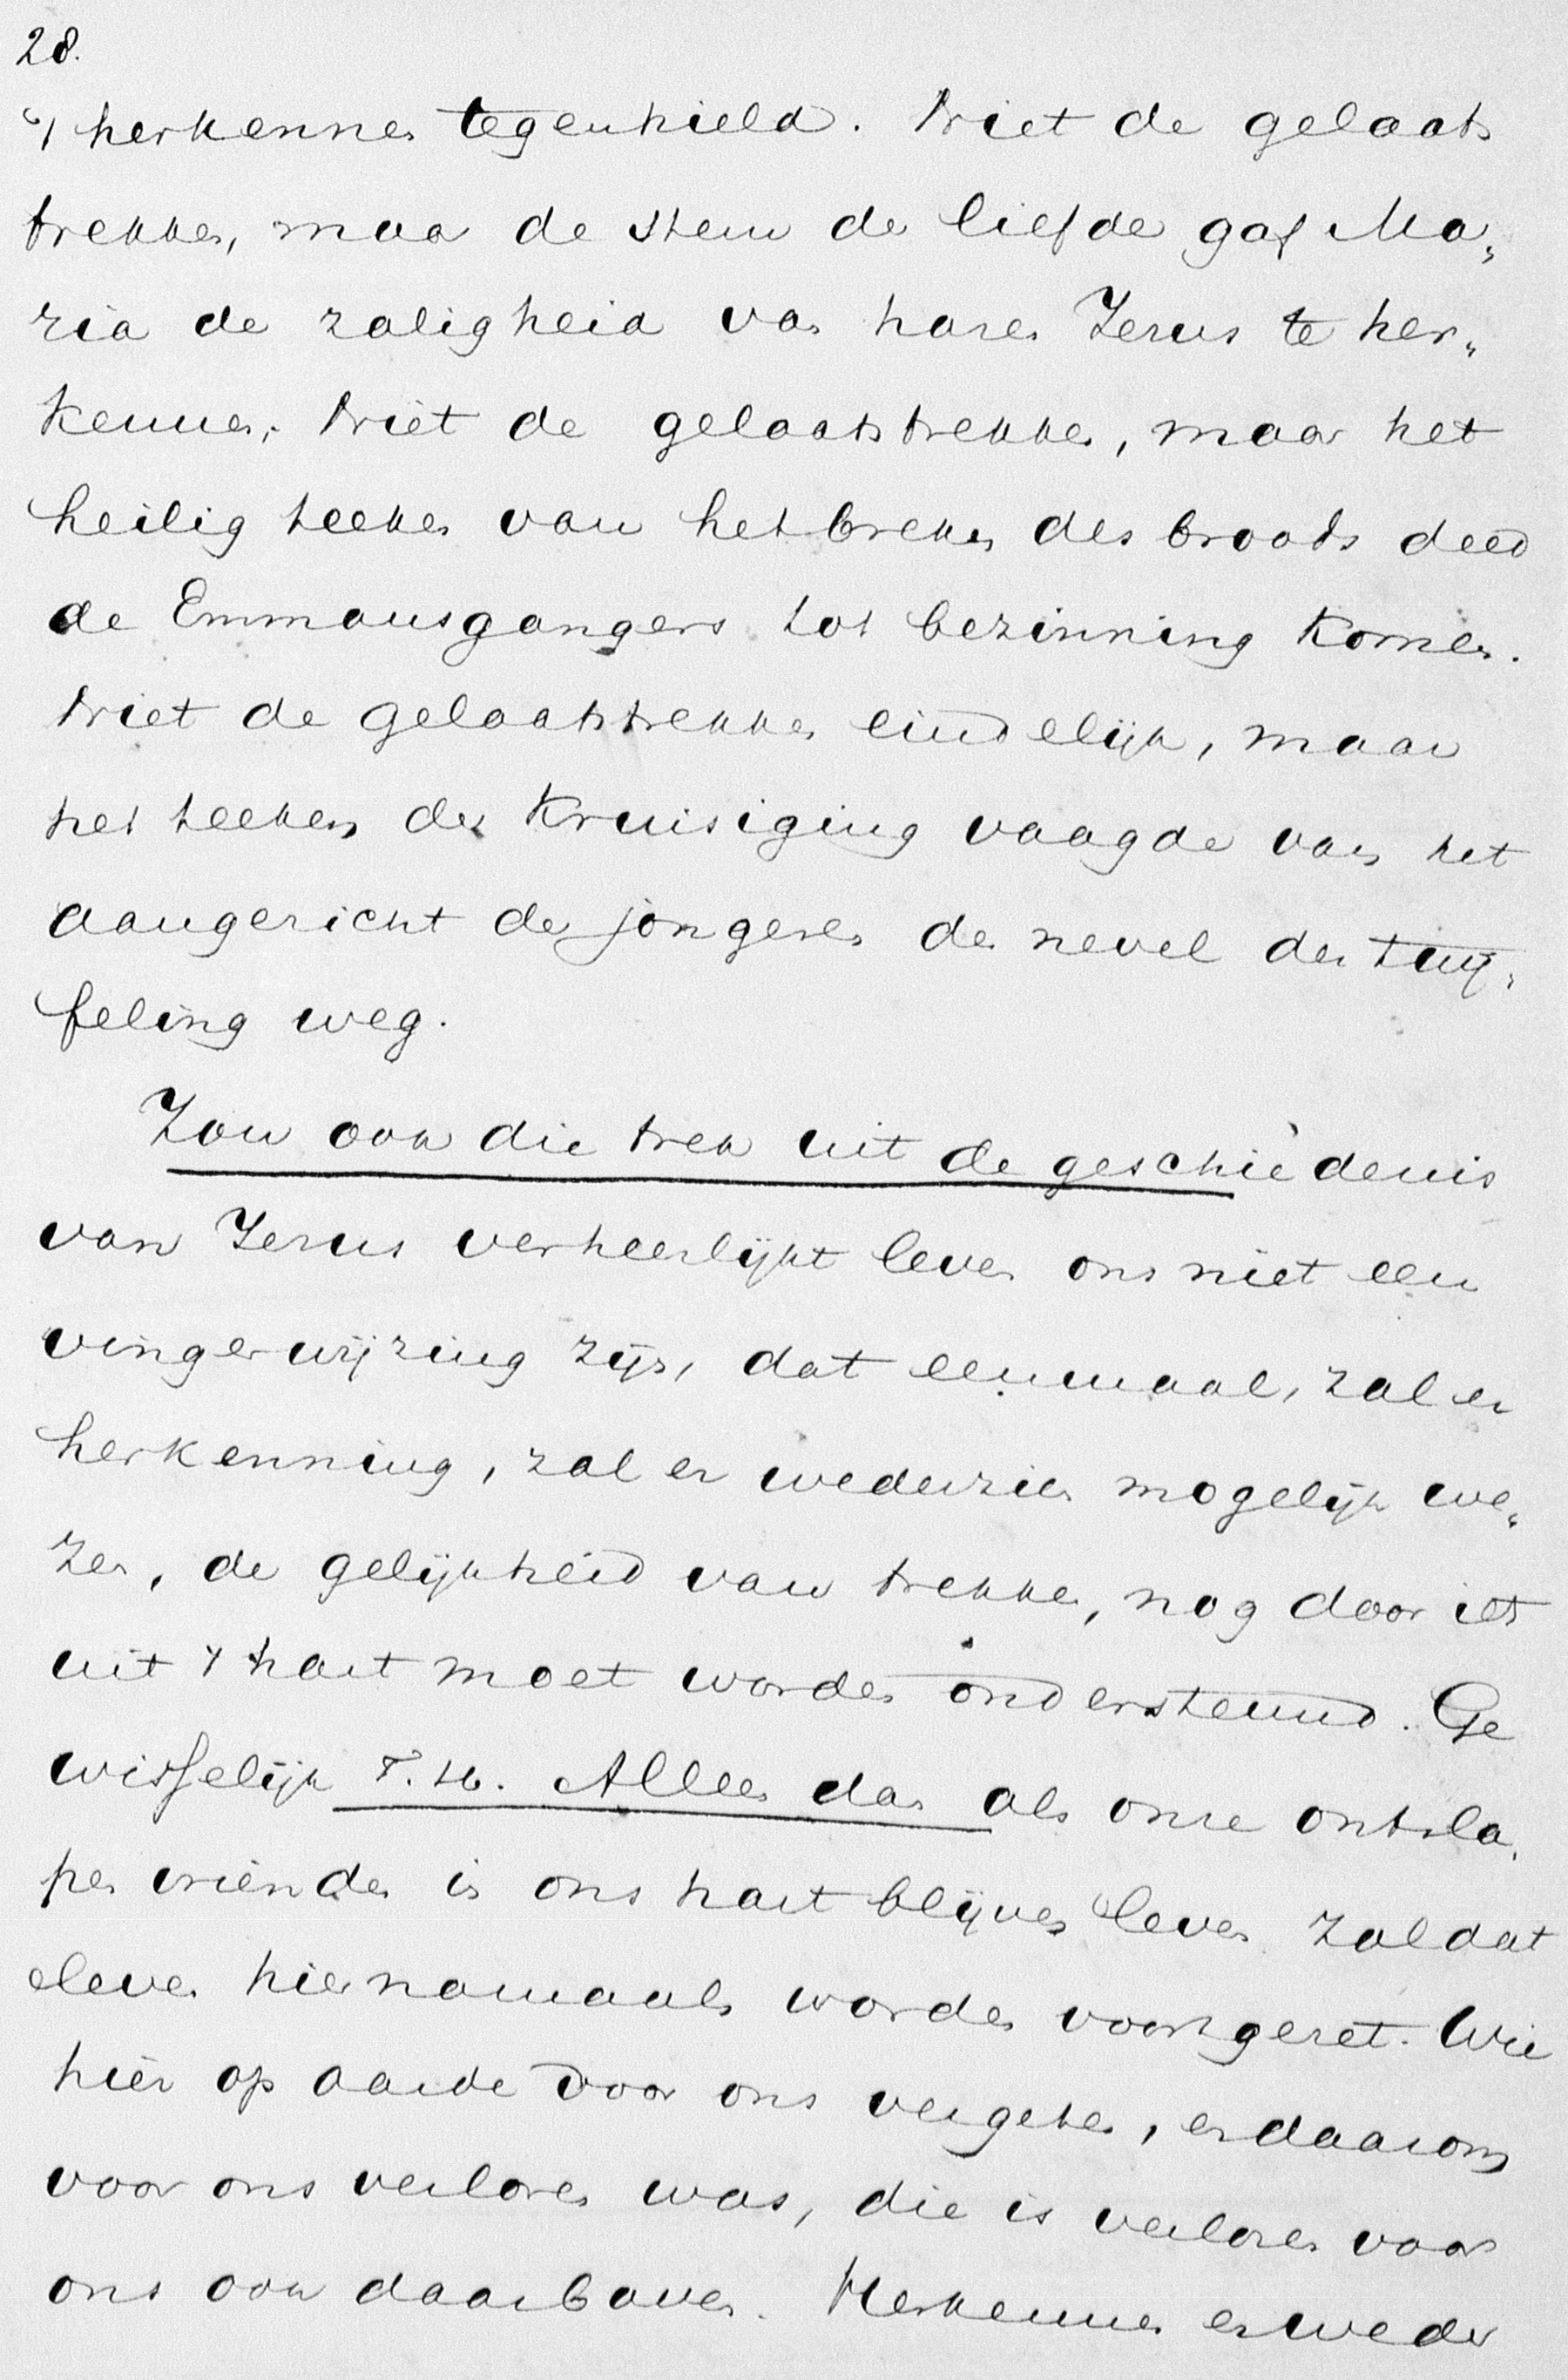 28.
't herkennen tegenhield. Niet de gelaats
trekken, maar de stem der liefde gaf Ma„
ria de zaligheid van haren Jezus te her„
kennen; Niet de gelaatstrekken, maar het
heilig teeken van het breken des broods deed
de Emmausgangers tot bezinning komen.
Niet de gelaatstrekken eindelijk, maar
het teeken der Kruisiging vaagde van het
aangezicht der jongeren den nevel der twij„
feling weg.
Zou ook die trek uit de geschiedenis
van Jezus verheerlijkt leven ons niet een
vingerwijzing zijn, dat eenmaal, zal er
herkenning, zal er wederzien mogelijk we„
zen, de gelijkheid van trekken, nog door iets
uit 't hart moet worden ondersteund. Ge
wisselijk T. H. Alleen dan als onze ontsla„
pen vrienden in ons hart blijven leven zal dat
leven hiernamaals worden voortgezet. Wie
hier op aarde door ons vergeten, en daarom
voor ons verloren was, die is verloren voor
ons ook daarboven. Herkennen en weder